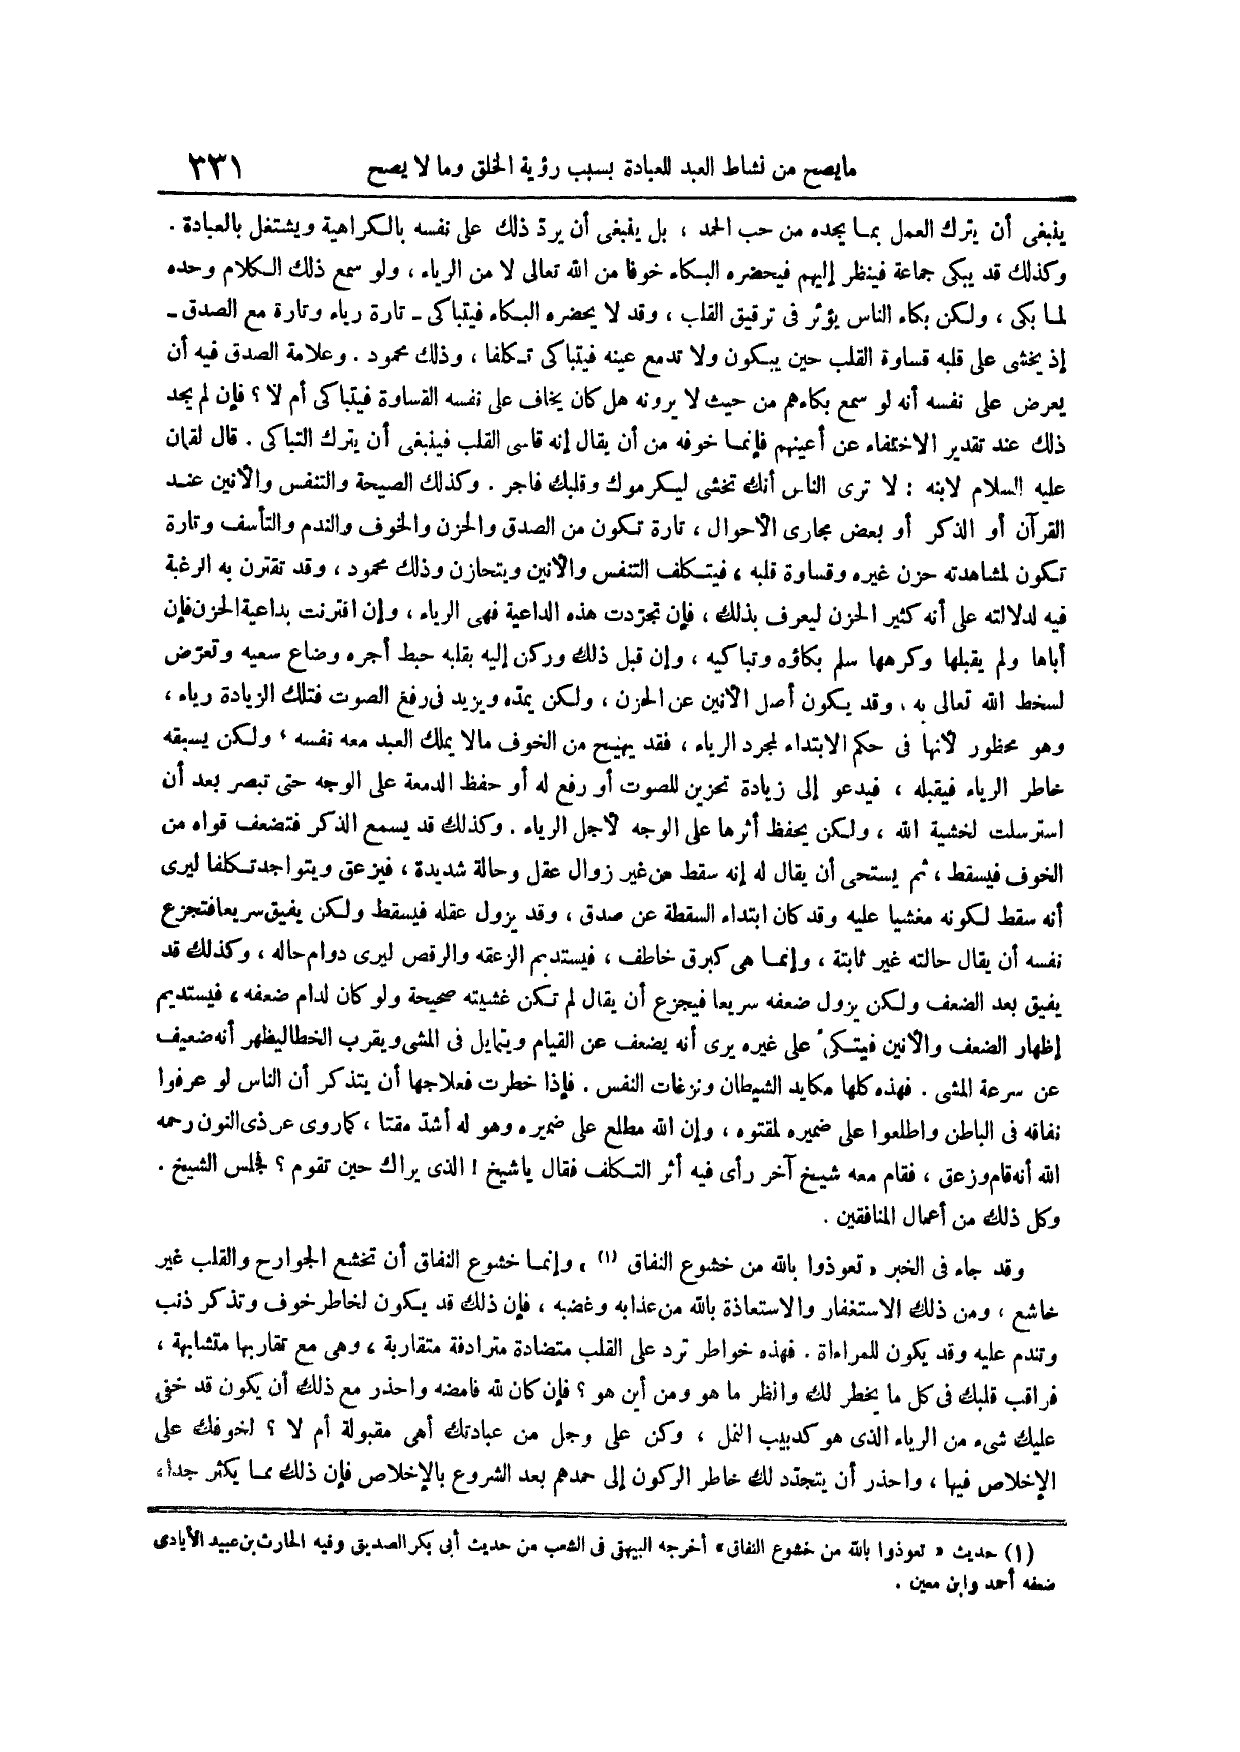 مايصح من نشاط العبد للعبادة بسبب رؤية الخلق وما لا يصح ٣٣١
ينبغى أن يترك العمل بمـا يجده من حب الحمد ، بل ينبغى أن يردّ ذلك على نفسه بالـكراهية ويشتغل بالعبادة .
وكذلك قد يبكى جماعة فينظر إليهم فيحضره البـكاء خوفا من الله تعالى لا من الرياء ، ولو سمع ذلك الـكلام وحده
لمـا بكى ، ولكن بكاء الناس يؤثر فى ترقيق القلب ، وقد لا يحضره البـكاء فيتباكى ـ تارة رياء وتارة مع الصدق ـ
إذ يخشى على قلبه قساوة القلب حين يبـكون ولا تدمع عينه فيتباكى تـكلفا ، وذلك محمود . وعلامة الصدق فيه أن
يعرض على نفسه أنه لو سمع بكاءهم من حيث لا يرونه هل كان يخاف على نفسه القساوة فيتباكى أم لا ؟ فإن لم يجد
ذلك عند تقدير الاختفاء عن أعينهم فإنمـا خوفه من أن يقال إنه قاسى القلب فينبغى أن يترك التباكى . قال لقمان
عليه السلام لابنه : لا ترى الناس أنك تخشى ليـكرموك وقلبك فاجر . وكذلك الصيحة والتنفس والأنين عنـد
القرآن أو الذكر أو بعض مجارى الأحوال ، تارة تـكون من الصدق والحزن والخوف والندم والتأسف وتارة
تـكون لمشاهدته حزن غيره وقساوة قلبه ، فيتـكلف التنفس والأنين ويتحازن وذلك محمود ، وقد تقترن به الرغبة
فيه لدلالته على أنه كثير الحزن ليعرف بذلك ، فإن تجرّدت هذه الداعية فهى الرياء ، وإن اقترنت بداعية الحزن فإن
أباها ولم يقبلها وكرهها سلم بكاؤه وتباكيه ، وإن قبل ذلك وركن إليه بقلبه حبط أجره وضاع سعيه وتعرّض
لسخط الله تعالى به . وقد يـكون أصل الأنين عن الحزن ، ولـكن يمدّه ويزيد فى رفع الصوت فتلك الزيادة رياء ،
وهو محظور لأنها فى حكم الابتداء لمجرد الرياء ، فقد يهيج من الخوف مالا يملك العبد معه نفسه ، ولـكن يسبقه
خاطر الرياء فيقبله ، فيدعو إلى زيادة تحزين للصوت أو رفع له أو حفظ الدمعة على الوجه حتى تبصر بعد أن
استرسلت لخشية الله ، ولـكن يحفظ أثرها على الوجه لأجل الرياء . وكذلك قد يسمع الذكر فتضعف قواه من
الخوف فيسقط ، ثم يستحى أن يقال له إنه سقط من غير زوال عقل وحالة شديدة ، فيزعق ويتواجد تـكلفا ليرى
أنه سقط لـكونه مغشيا عليه وقد كان ابتداء السقطة عن صدق ، وقد يزول عقله فيسقط ولـكن يفيق سريعا فتجزع
نفسه أن يقال حالته غير ثابتة ، وإنمـا هى كبرق خاطف ، فيستديم الزعقه والرقص ليرى دوام حاله ، وكذلك قد
يفيق بعد الضعف ولكن يزول ضعفه سريعا فيجزع أن يقال لم تـكن غشيته صحيحة ولو كان لدام ضعفه ، فيستديم
إظهار الضعف والأنين فيتـكئ على غيره يرى أنه يضعف عن القيام ويتمايل فى المشى ويقرب الخطا ليظهر أنه ضعيف
عن سرعة المشى . فهذه كلها مكايد الشيطان ونزغات النفس . فإذا خطرت فعلاجها أن يتذكر أن الناس لو عرفوا
نفاقه فى الباطن واطلعوا على ضميره لمقتوه ، وإن الله مطلع على ضميره وهو له أشدّ مقتا ، كما روى عن ذى النون رحمه
الله أنه قام وزعق ، فقام معه شيخ آخر رأى فيه أثر التـكلف فقال ياشيخ ! الذى يراك حين تقوم ؟ فجلس الشيخ .
وكل ذلك من أعمال المنافقين .
وقد جاء فى الخبر « تعوذوا بالله من خشوع النفاق (١) » وإنمـا خشوع النفاق أن تخشع الجوارح والقلب غير
خاشع ، ومن ذلك الاستغفار والاستعاذة بالله من عذابه وغضبه ، فإن ذلك قد يـكون لخاطر خوف وتذكر ذنب
وتندم عليه وقد يكون للمراءاة . فهذه خواطر ترد على القلب متضادة مترادفة متقاربة ، وهى مع تقاربها متشابهة ،
فراقب قلبك فى كل ما يخطر لك وانظر ما هو ومن أين هو ؟ فإن كان لله فامضه واحذر مع ذلك أن يكون قد خفى
عليك شىء من الرياء الذى هو كدبيب النمل ، وكن على وجل من عبادتك أهى مقبولة أم لا ؟ لخوفك على
الإخلاص فيها ، واحذر أن يتجدّد لك خاطر الركون إلى حمدهم بعد الشروع بالإخلاص فإن ذلك ممـا يكثر جدا ،
(١) حديث « تعوذوا بالله من خشوع النفاق » أخرجه البيهقى فى الشعب من حديث أبى بكر الصديق وفيه الحارث بن عبيد الأيادى
ضعفه أحمد وابن معين .